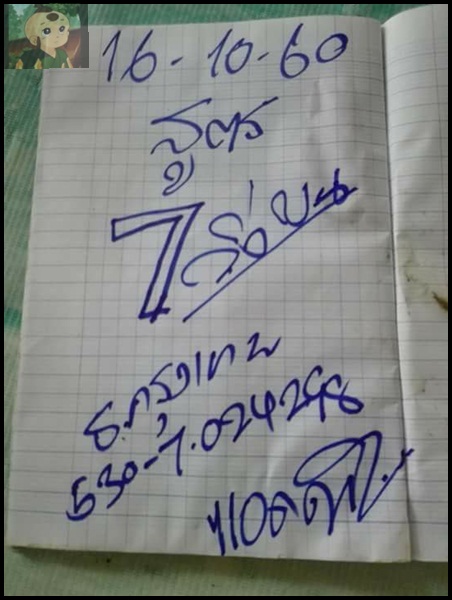 16-10-60
สูตร
7 วิ่งบน
ธ.กรุงเทพ
530-7.024298